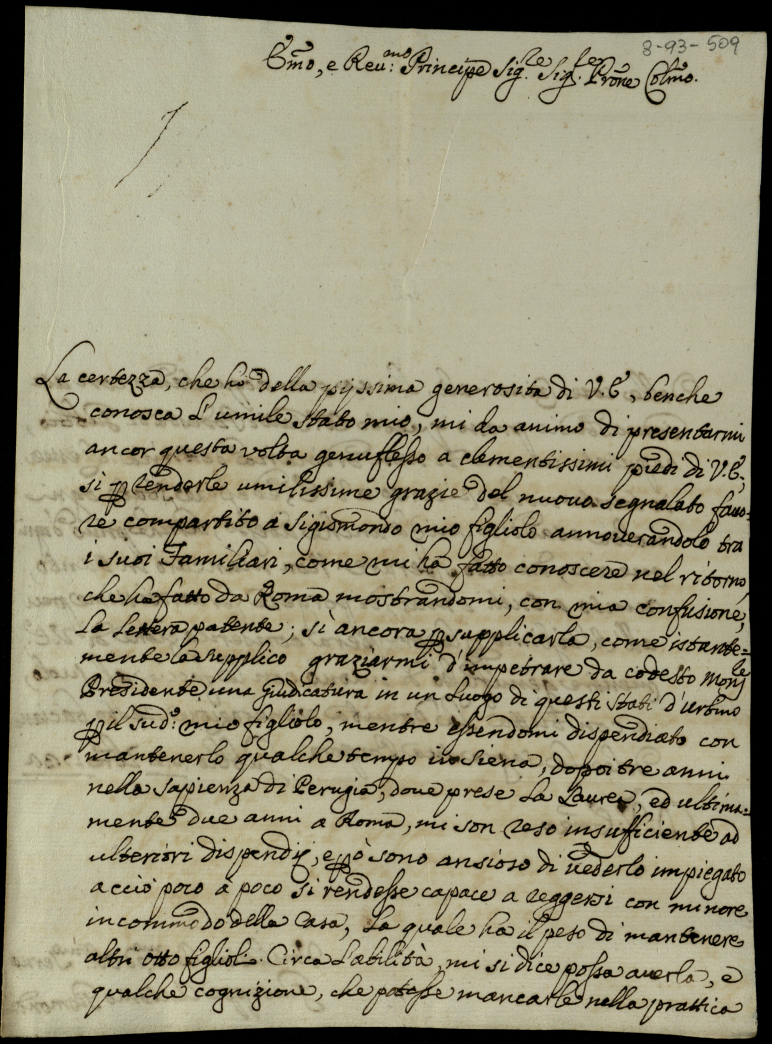 8-93-509
Emo, e Reu:mo Principe Sig.re Sig.re Prone Colmo.
La certezza, che hò della pijssima generosita di V.E, benche
conosca l'umile stato mio, mi da animo di presentarmi
ancor questa volta genuflesso a clementissimi piedi di V.E,
sì p renderle umilissime grazie del nuovo segnalato favo=
re compartito a Sigismondo mio figliolo annoverandolo tra
i suoi Familiari, come mi ha fatto conoscere nel ritorno
che ha fatto da Roma mostrandomi, con mia confusione,
la lettera patente; sì ancora p supplicarla, come istante=
mente la supplico graziarmi d'impetrare da codesto Monsre
Presidente una Giudicatura in un luogo di questi Stati d'Urbino
p il sud.o mio figliolo, mentre essendomi dispendiato con
mantenerlo qualche tempo in Siena, dopoi tre anni
nella sapienza di Perugia, dove prese la Laurea, ed ultima=
mente due anni a Roma, mi son reso insufficiente ad
ulteriori dispendij, e pò sono ansioso di vederlo impiegato
acciò poco a poco si rendesse capace a reggersi con minore
incommodo della Casa, la quale ha il peso di mantenere
altri otto figlioli. Circa l'abilità, mi si dice possa averla, e
qualche cognizione, che potesse mancarle nella prattica